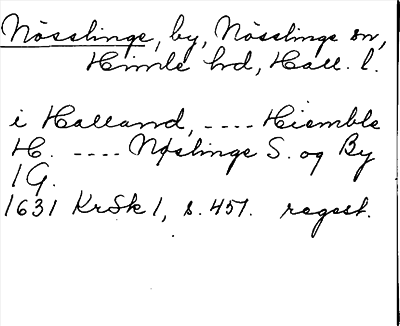 Nösslinge, by, Nösslinge sn,
Himle hd, Hall. l.
i Halland, ---- Hiemble
H. ---- Nøslinge S. og By
1 G.
1631 KrSk 1, s. 457. regest.